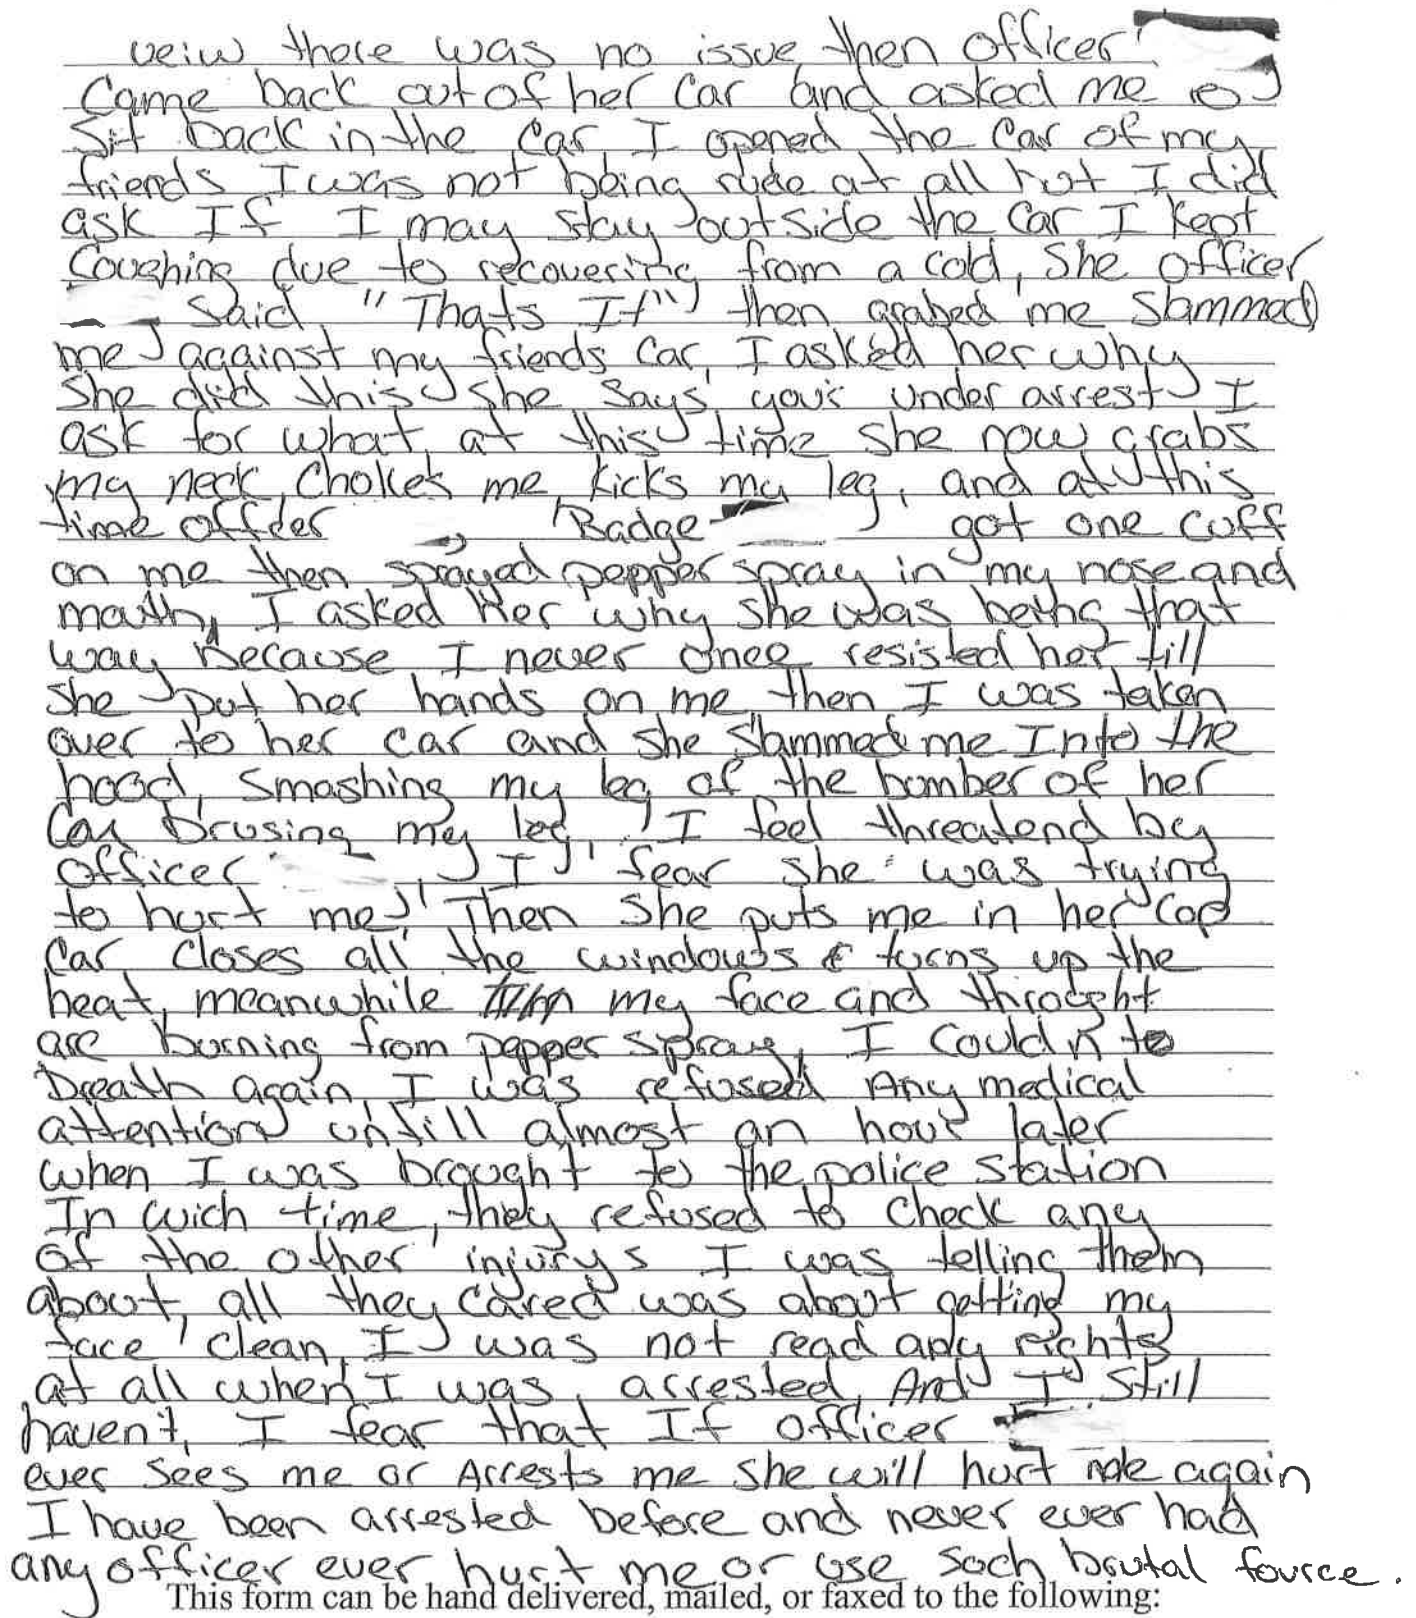 veiw there was no issue, then officer
Came back out of her car and asked me to
Sit back in the car, I opened the car of my
friends I was not being rude at all but I did
ask If I may stay outside the car I kept
Coughing due to recovering from a cold, She officer
Said "Thats It" then grabed me Slammed
me against my friends car, I asked her why
She did this she says your under arrest I
ask for what, at this time she now grabs
my neck, chokes me, kicks my leg, and at this
time officer Badge got one cuff
on me then sprayed pepper spray in my nose and
mouth, I asked her why she was being that
way because I never once resisted her, till
she put her hands on me, then I was taken
over to her car and she slammed me Into the
hood, smashing my leg of the bumber of her
Car brusing my leg, I feel threatend by
officer , I fear she was trying
to hurt me, Then she puts me in her cop
car, closes all the windows & turns up the
heat, meanwhile my face and throught
are burning from pepper spray, I couldn't
breath again, I was refused Any medical
attention untill almost an hour later
when I was brought to the police station
In wich time, they refused to check any
of the other injurys I was telling them
about, all they cared was about getting my
face clean, I was not read any rights
at all when I was arrested, And I still
haven't, I fear that If officer
ever sees me or Arrests me she will hurt me again
I have been arrested before and never ever had
any officer ever hurt me or use such brutal fource.
This form can be hand delivered, mailed, or faxed to the following: